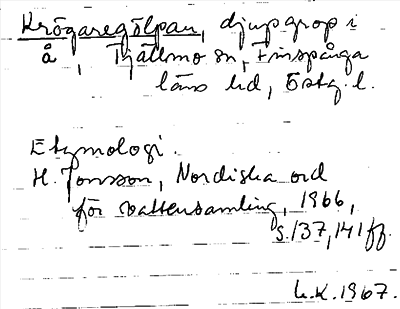 Krögaregölpan, djupgrop i
å, Tjällmo sn, Finspånga
läns hd, Östg. l.
Etymologi.
H. Jonsson, Nordiska ord
för vattensamling, 1966,
s. 137, 141 ff.
L.K. 1967.